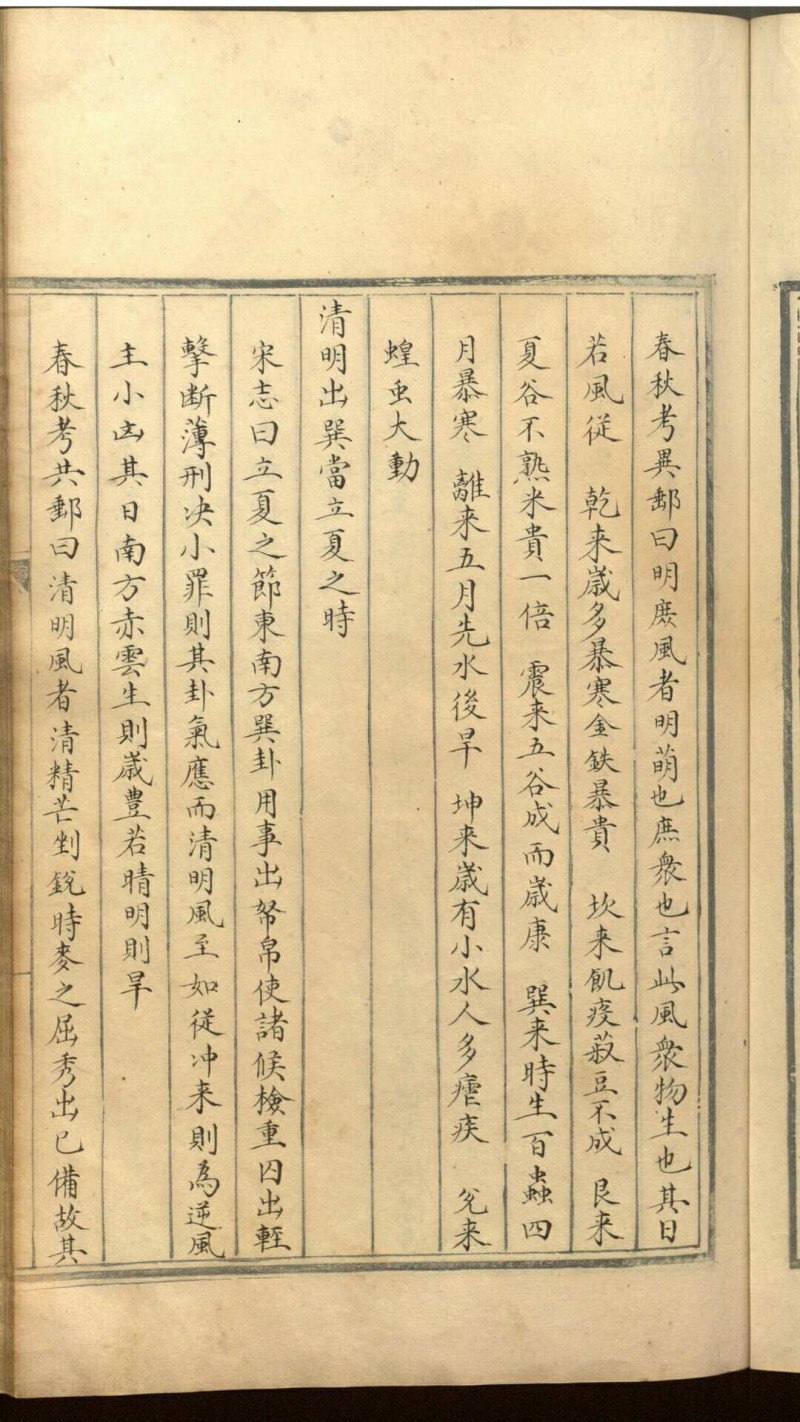 春秋考異郵曰明庶風者明萌也庶衆也言此風衆物生也其日
若風従　乾来歳多暴寒金鉄暴貴　坎来飢疫菽豆不成　艮来
夏谷不熟米貴一倍　震来五谷成而歳康　巽来時生百蟲四
月暴寒　離来五月先水後旱　坤来歳有小水人多瘧疾　兌来
蝗虫大動
清明出巽當立夏之時
宋志曰立夏之節東南方巽卦用事出帑帛使諸候檢重囚出輊
擊断薄刑决小罪則其卦氣應而清明風至如従冲来則為逆風
主小凶其日南方赤雲生則歳豊若晴明則旱
春秋考共郵曰清明風者清精芒剉銳時麥之屈秀出已備故其